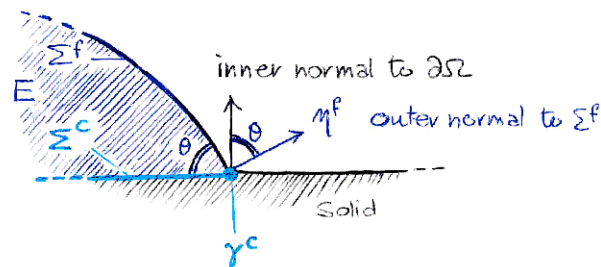 Σᶠ
inner normal to ∂Ω
E
θ
ηᶠ outer normal to Σᶠ
Σᶜ
θ
Solid
γᶜ